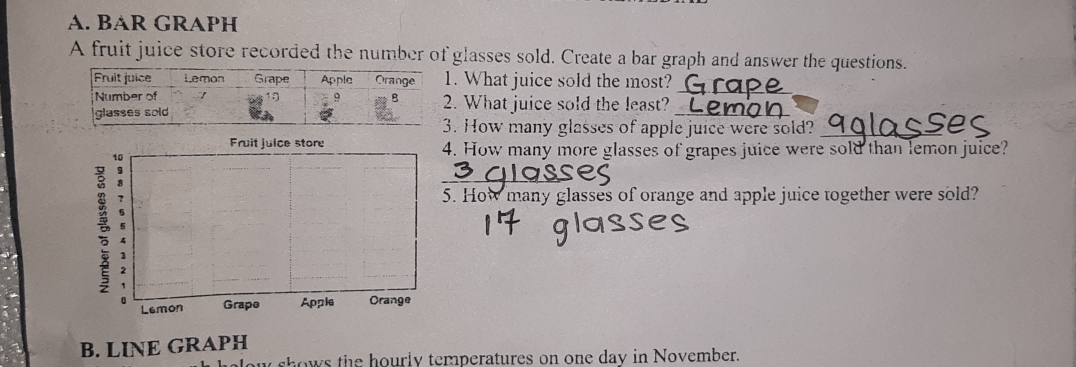 A. BAR GRAPH
A fruit juice store recorded the number of glasses sold. Create a bar graph and answer the questions.
Fruit juice Lemon Grape Apple Orange
Number of glasses sold 7 10 9 8
1. What juice sold the most? Grape
2. What juice sold the least? Lemon
3. How many glasses of apple juice were sold? 9 glasses
4. How many more glasses of grapes juice were sold than lemon juice?
3 glasses
5. How many glasses of orange and apple juice together were sold?
17 glasses
Fruit juice store
Number of glasses sold
10
9
8
7
6
5
4
3
2
1
0
Lemon Grape Apple Orange
B. LINE GRAPH
below shows the hourly temperatures on one day in November.